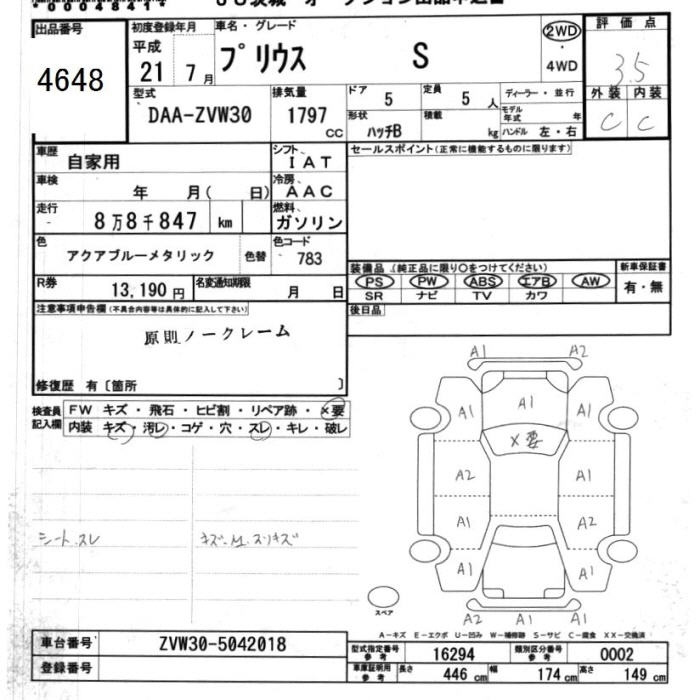 出品番号
4648
初度登録年月
平成
21 7月
車名・グレード
プリウス S
2WD
・
4WD
評価点
3.5
外装 内装
C C
型式
DAA-ZVW30
排気量
1797
CC
ドア
5
定員
5 人
形状
ハッチB
積載
kg
ディーラー・並行
モデル年式 年
ハンドル 左・右
車歴
自家用
シフト
IAT
セールスポイント(正常に機能するものに限ります)
車検
年 月( 日)
冷房
AAC
走行
8万8千847 km
燃料
ガソリン
色
アクアブルーメタリック
色替
色コード
783
R券
13,190円
名変通知期限
月 日
装備品(純正品に限り○をつけてください)
PS PW ABS エアB AW
SR ナビ TV カワ
新車保証書
有・無
後日品
注意事項申告欄(不具合内容等は具体的に記入して下さい)
原則ノークレーム
修復歴 有〔箇所 〕
検査員
記入欄
FW キズ・飛石・ヒビ割・リペア跡・×要
内装 キズ・汚レ・コゲ・穴・スレ・キレ・破レ
シートスレ
A1 A2
A1 A1 A1
×要
A2 A1
A1 A2
A1 A1
A2 A1 A1
スペア
A-キズ E-エクボ U-凹み W-補修跡 S-サビ C-腐食 XX-交換済
車台番号
ZVW30-5042018
登録番号
型式指定番号
参考
16294
類別区分番号
参考
0002
車庫証明用
参考
長さ
446cm
幅
174cm
高さ
149cm